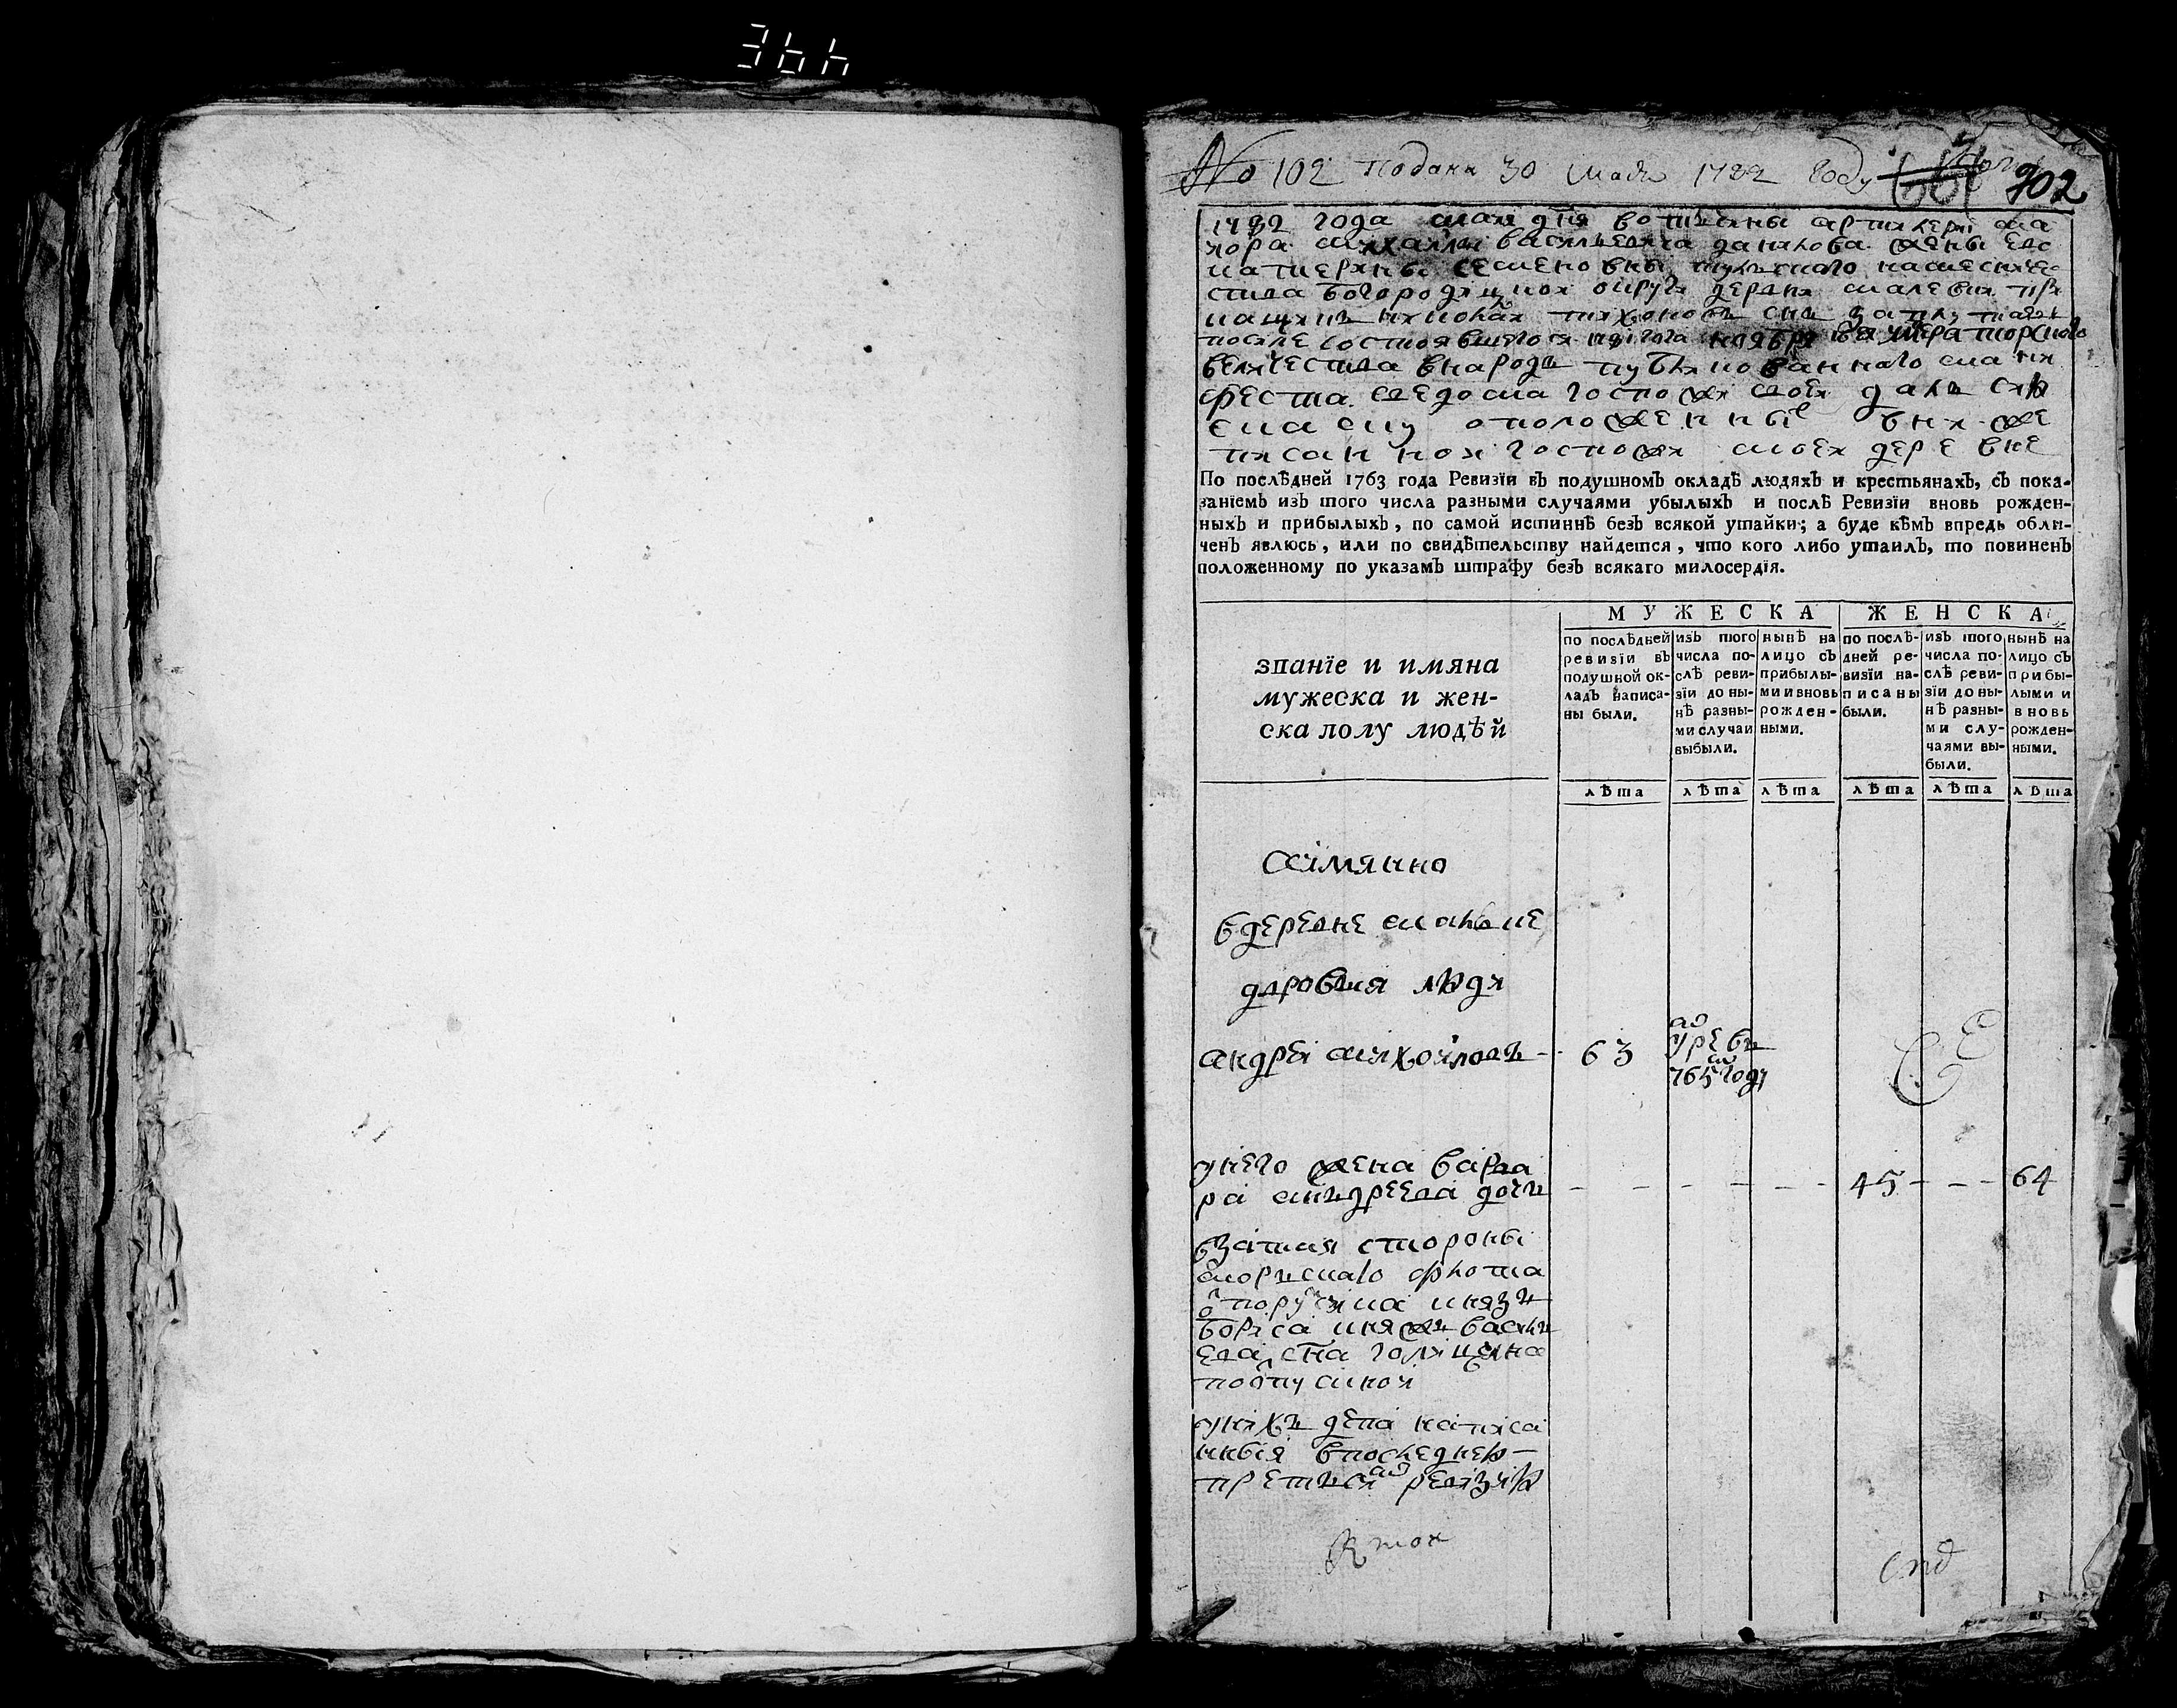 No 102 подана 30 маия 1782 году 702
1782 года маия дня вотчины артилерии ма
иора михайлы васильевича данилова жены ево
катерины семеновны тульского наместниче
ства богородицкой округи деревни малевки при
кащик николай тихонов снъ
после состоявшегося ноября ея императорского
величества внародъ публикованного мани
феста сведома госпожи своеи далъ сию
скаску о положенныхъ внижe
писанной госпожи моеи деревне
По послѣдней 1763 года Ревизіи въ подушномъ окладѣ людяхъ и крестьянахъ, съ пока-
заніемъ изъ того числа разными случаями убылыхъ и послѣ Ревизіи вновь рожден-
ныхъ и прибылыхъ, по самой истиннѣ безъ всякой утайки; а буде кѣмъ впредь обли-
ченъ явлюсь, или по свидѣтельству найдется, что кого либо утаилъ, то повиненъ
положенному по указамъ штрафу безъ всякаго милосердія.
МУЖЕСКА ЖЕНСКА
званіе и имяна
мужеска и жен-
ска полу людѣй
по послѣдней
ревизіи въ
подушной ок-
ладъ написа-
ны были.
изъ того
числа по-
слѣ реви-
зіи до ны-
нѣ разны-
ми случаи
выбыли.
нынѣ на
лицо съ
прибылы-
ми и вновь
рожден-
ными.
по послѣ-
дней ре-
визіи на-
писаны
были.
изъ того
числа по-
слѣ реви-
зіи до ны-
нѣ разны-
ми слу-
чаями вы-
были.
нынѣ на
лицо съ
прибы-
лыми и
вновь
рожден-
ными.
лѣта лѣта лѣта лѣта лѣта лѣта
аимянно
вдеревне малевке
дворовыя люди
андреи михоиловъ 63 умре въ
765 году
унего жена варва
ра андреева дочь 45 64
взатая стороны
морскаго флота
отпорутчика князь
бориса княжъ василь
ева сна голицына
поотпускной
унихъ дети написа
нныя впоследнею
третьею ревизию